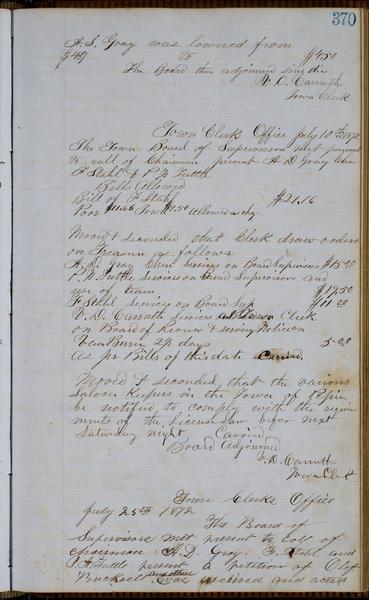 370
A. D. Gray was lowered from
$40 to $450
The Board then adjourned sine die
V. D. Carruth
Town Clerk
Town Clerk Office July 10th 1872
The Town Board of Supervisors met pursuant
to call of Chairman present A D Gray Chn
F Stahl & P H Tuttle
Bills Allowed
Bill of F Stahl $21.16
Poor $11.66 Town $9.50 allowed & chg
Moved & seconded that Clerk draw orders
on Treasurer as follows
A. D. Gray Chrn Services on Board Supervisors $15.00
P. H. Tuttle Services on Board Supervisors and
use of team $17.50
F. Stahl Services on Board Sup $11.00
V. D. Carruth Services as Town Clerk
on Board of Review & serving Notice on
Van Buren 2½ days 5.00
as pr Bills of this date Carried.
Moved & seconded that the various
Saloon Keepers in the Town of Pepin
be notified to comply with the require
ments of the License Law befor next
Saturday night Carried
Board Adjourned
V. D. Carruth
Town Clerk
Town Clerks Office
July 25th 1872
The Board of
Supervisors met present to call of
chairman A. D. Gray. F. Stahl and
P. H. Tuttle present a petition of Olof
and others was received and acted